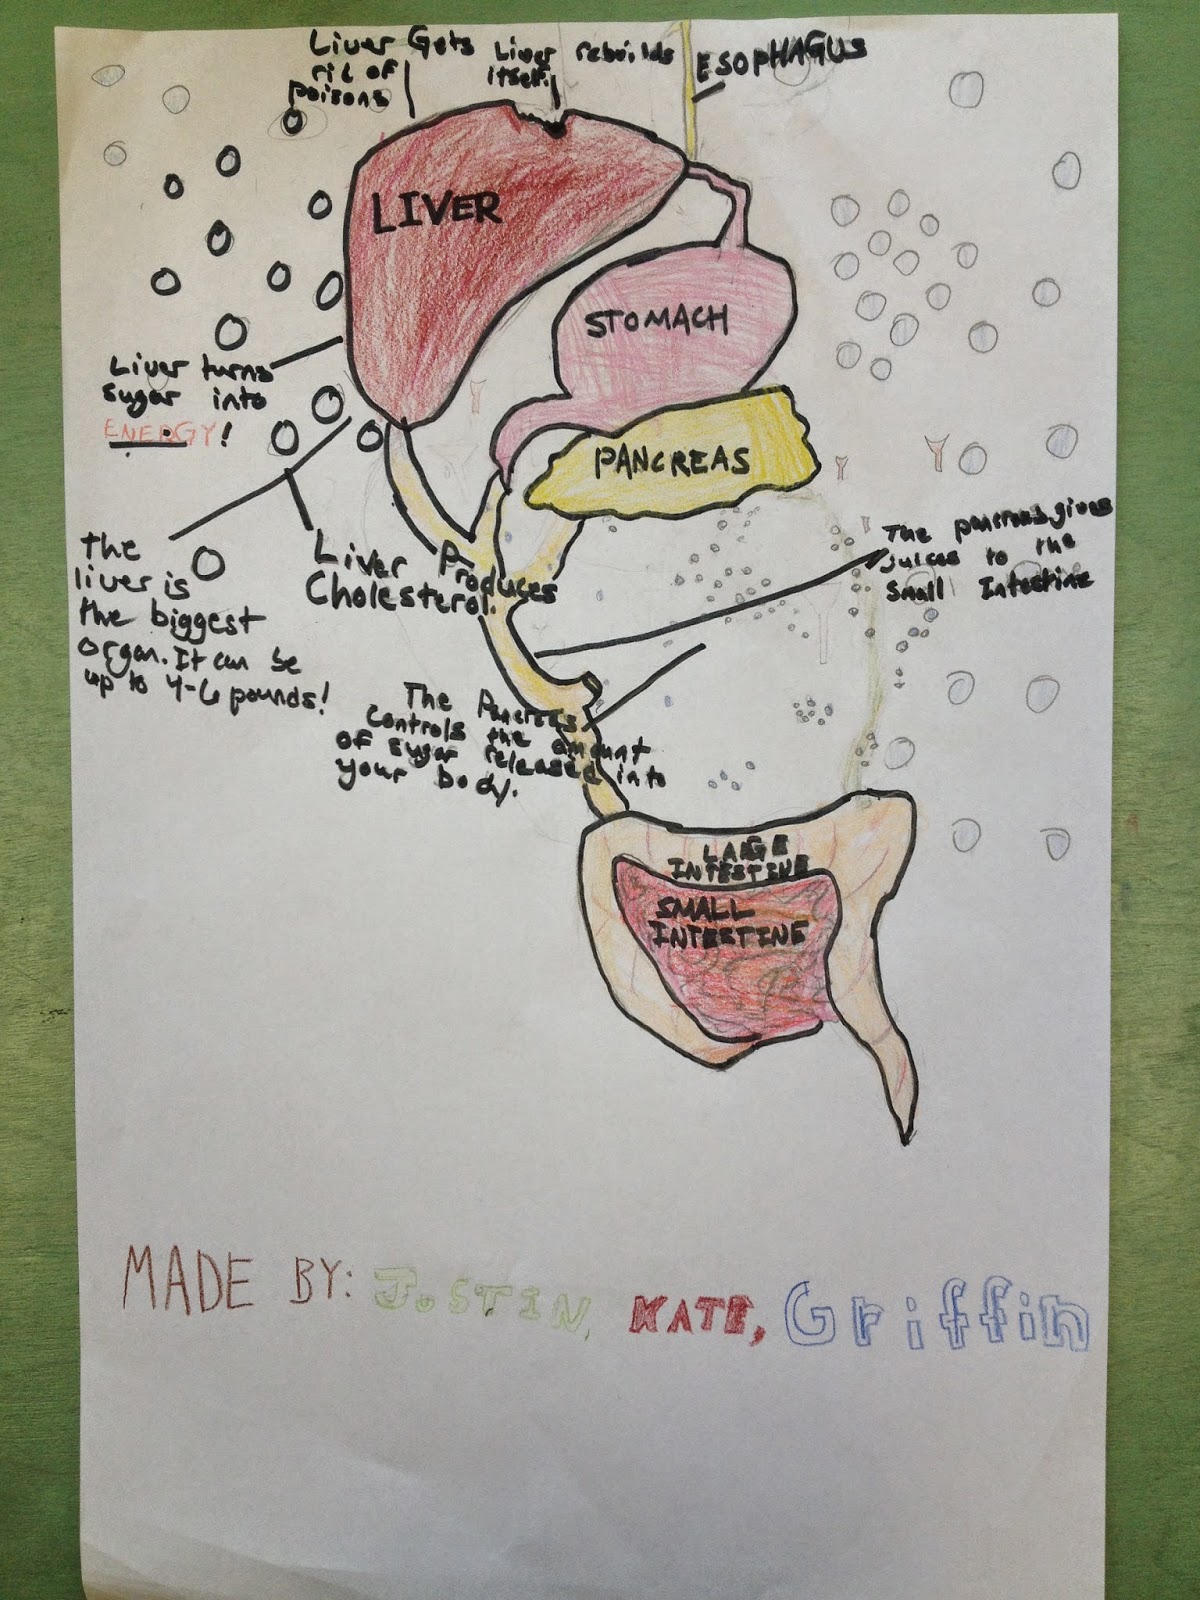 Liver Gets
rid of
poisons
Liver rebuilds
itself.
ESOPHAGUS
LIVER
STOMACH
PANCREAS
Liver turns
sugar into
ENERGY!
The
liver is
the biggest
organ. It can be
up to 4-6 pounds!
Liver Produces
Cholesterol.
The pancreas gives
juices to the
Small Intestine
The Pancreas
controls the amount
of sugar released into
your body.
LARGE
INTESTINE
SMALL
INTESTINE
MADE BY: JOSTIN, KATE, Griffin